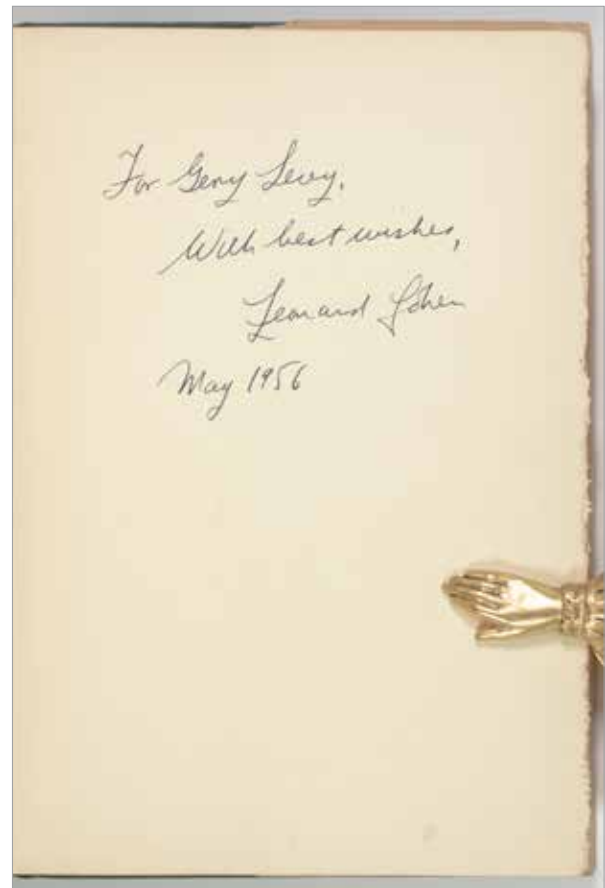 For Gerry Levy,
With best wishes,
Leonard Cohen
May 1956